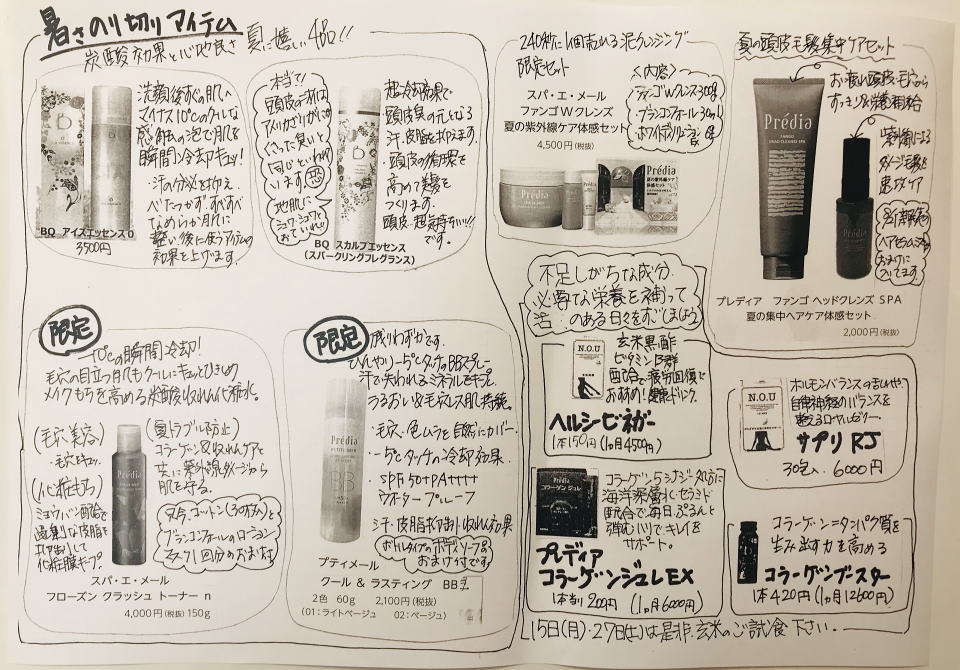 暑さのり切りアイテム
炭酸効果と心地良さ 夏に嬉しい4品!!
洗顔後すぐの肌へ
マイナス10℃のクールな
感触の泡で肌を
瞬間冷却キュッ!
・汗の分泌を抑え、
べたつかず、すべすべ
なめらか肌に
整い、後に使うアイテムの
効果を上げます。
BQ アイスエッセンス
3500円
本当?!
頭皮の汗は
くさった臭いと
同じといわれ
ています
地肌に
シュワシュワと
おていれ!!
超冷却効果で
頭皮臭の元となる
汗・皮脂を抑えます。
頭皮の循環を
高めて美髪を
つくります。
頭皮・超気持ちいい!!
です。
BQ スカルプエッセンス
(スパークリングフレグランス)
限定
-10℃の瞬間冷却!
毛穴の目立つ肌もクールにキュッとひきしめ
メイクもちを高める炭酸収れん化粧水。
(毛穴美容)
・毛穴キュッ。
(化粧もち)
ミョウバン配合で
過剰な皮脂を
抑制して
化粧膜キープ。
(夏トラブル防止)
コラーゲン&収れんケアと
共に紫外線ダメージから
肌を守る。
只今、コットン(30枚入)と
ブランコンフォールのローション
ミルク1回分のおまけ付
Prédia
スパ・エ・メール
フローズン クラッシュ トーナー n
4,000円(税抜)150g
限定
残りわずかです。
ひんやり-5℃タッチのBBスプレー
汗で失われるミネラルをキープ。
うるおい&毛穴レス肌持続。
・毛穴、色ムラを自然にカバー
・-5℃タッチの冷却効果
・SPF50+PA++++
ウオータープルーフ
・汗・皮脂抑制収れん効果
ボトルタイプのボディソープの
おまけ付です。
Prédia
BB
プティメール
クール & ラスティング BB
2色 60g 2,100円(税抜)
(01:ライトベージュ 02:ベージュ)
240秒に1個売れる泥クレンジング
限定セット
スパ・エ・メール
ファンゴ W クレンズ
夏の紫外線ケア体感セット
4,500円(税抜)
<内容>
ファンゴWクレンズ300g
・ブランコンフォール30ml
Prédia
夏の頭皮毛髪集中ケアセット
お疲れ頭皮・毛穴から
スッキリ&栄養補給
紫外線による
ダメージ毛髪を
集中ケア
ヘアセラムが
おまけに
入ってます。
Prédia
プレディア ファンゴ ヘッドクレンズ SPA
夏の集中ヘアケア体感セット
2,000円(税抜)
不足しがちな成分、
必要な栄養を補って
活きのある日々をすごしましょう
玄米黒酢
ビタミンB群
配合で疲労回復で
おすすめ!健康ドリンク。
N.O.U
ヘルシービネガー
1本150円(1ヵ月4500円)
ホルモンバランスの
自律神経のバランスを
整えるローヤルゼリー。
N.O.U
サプリ RJ
30包入. 6000円
コラーゲン
海洋深層水・セラミド
配合で毎日ぷるんと
弾むハリでキレイを
サポート。
プレディア
コラーゲンジュレEX
1本当り200円 (1ヵ月6000円)
コラーゲン=タンパク質を
生み出す力を高める
コラーゲンブースター
1本420円(1ヵ月12600円)
15日(月)・27日(土)は是非、玄米のご試食下さい。